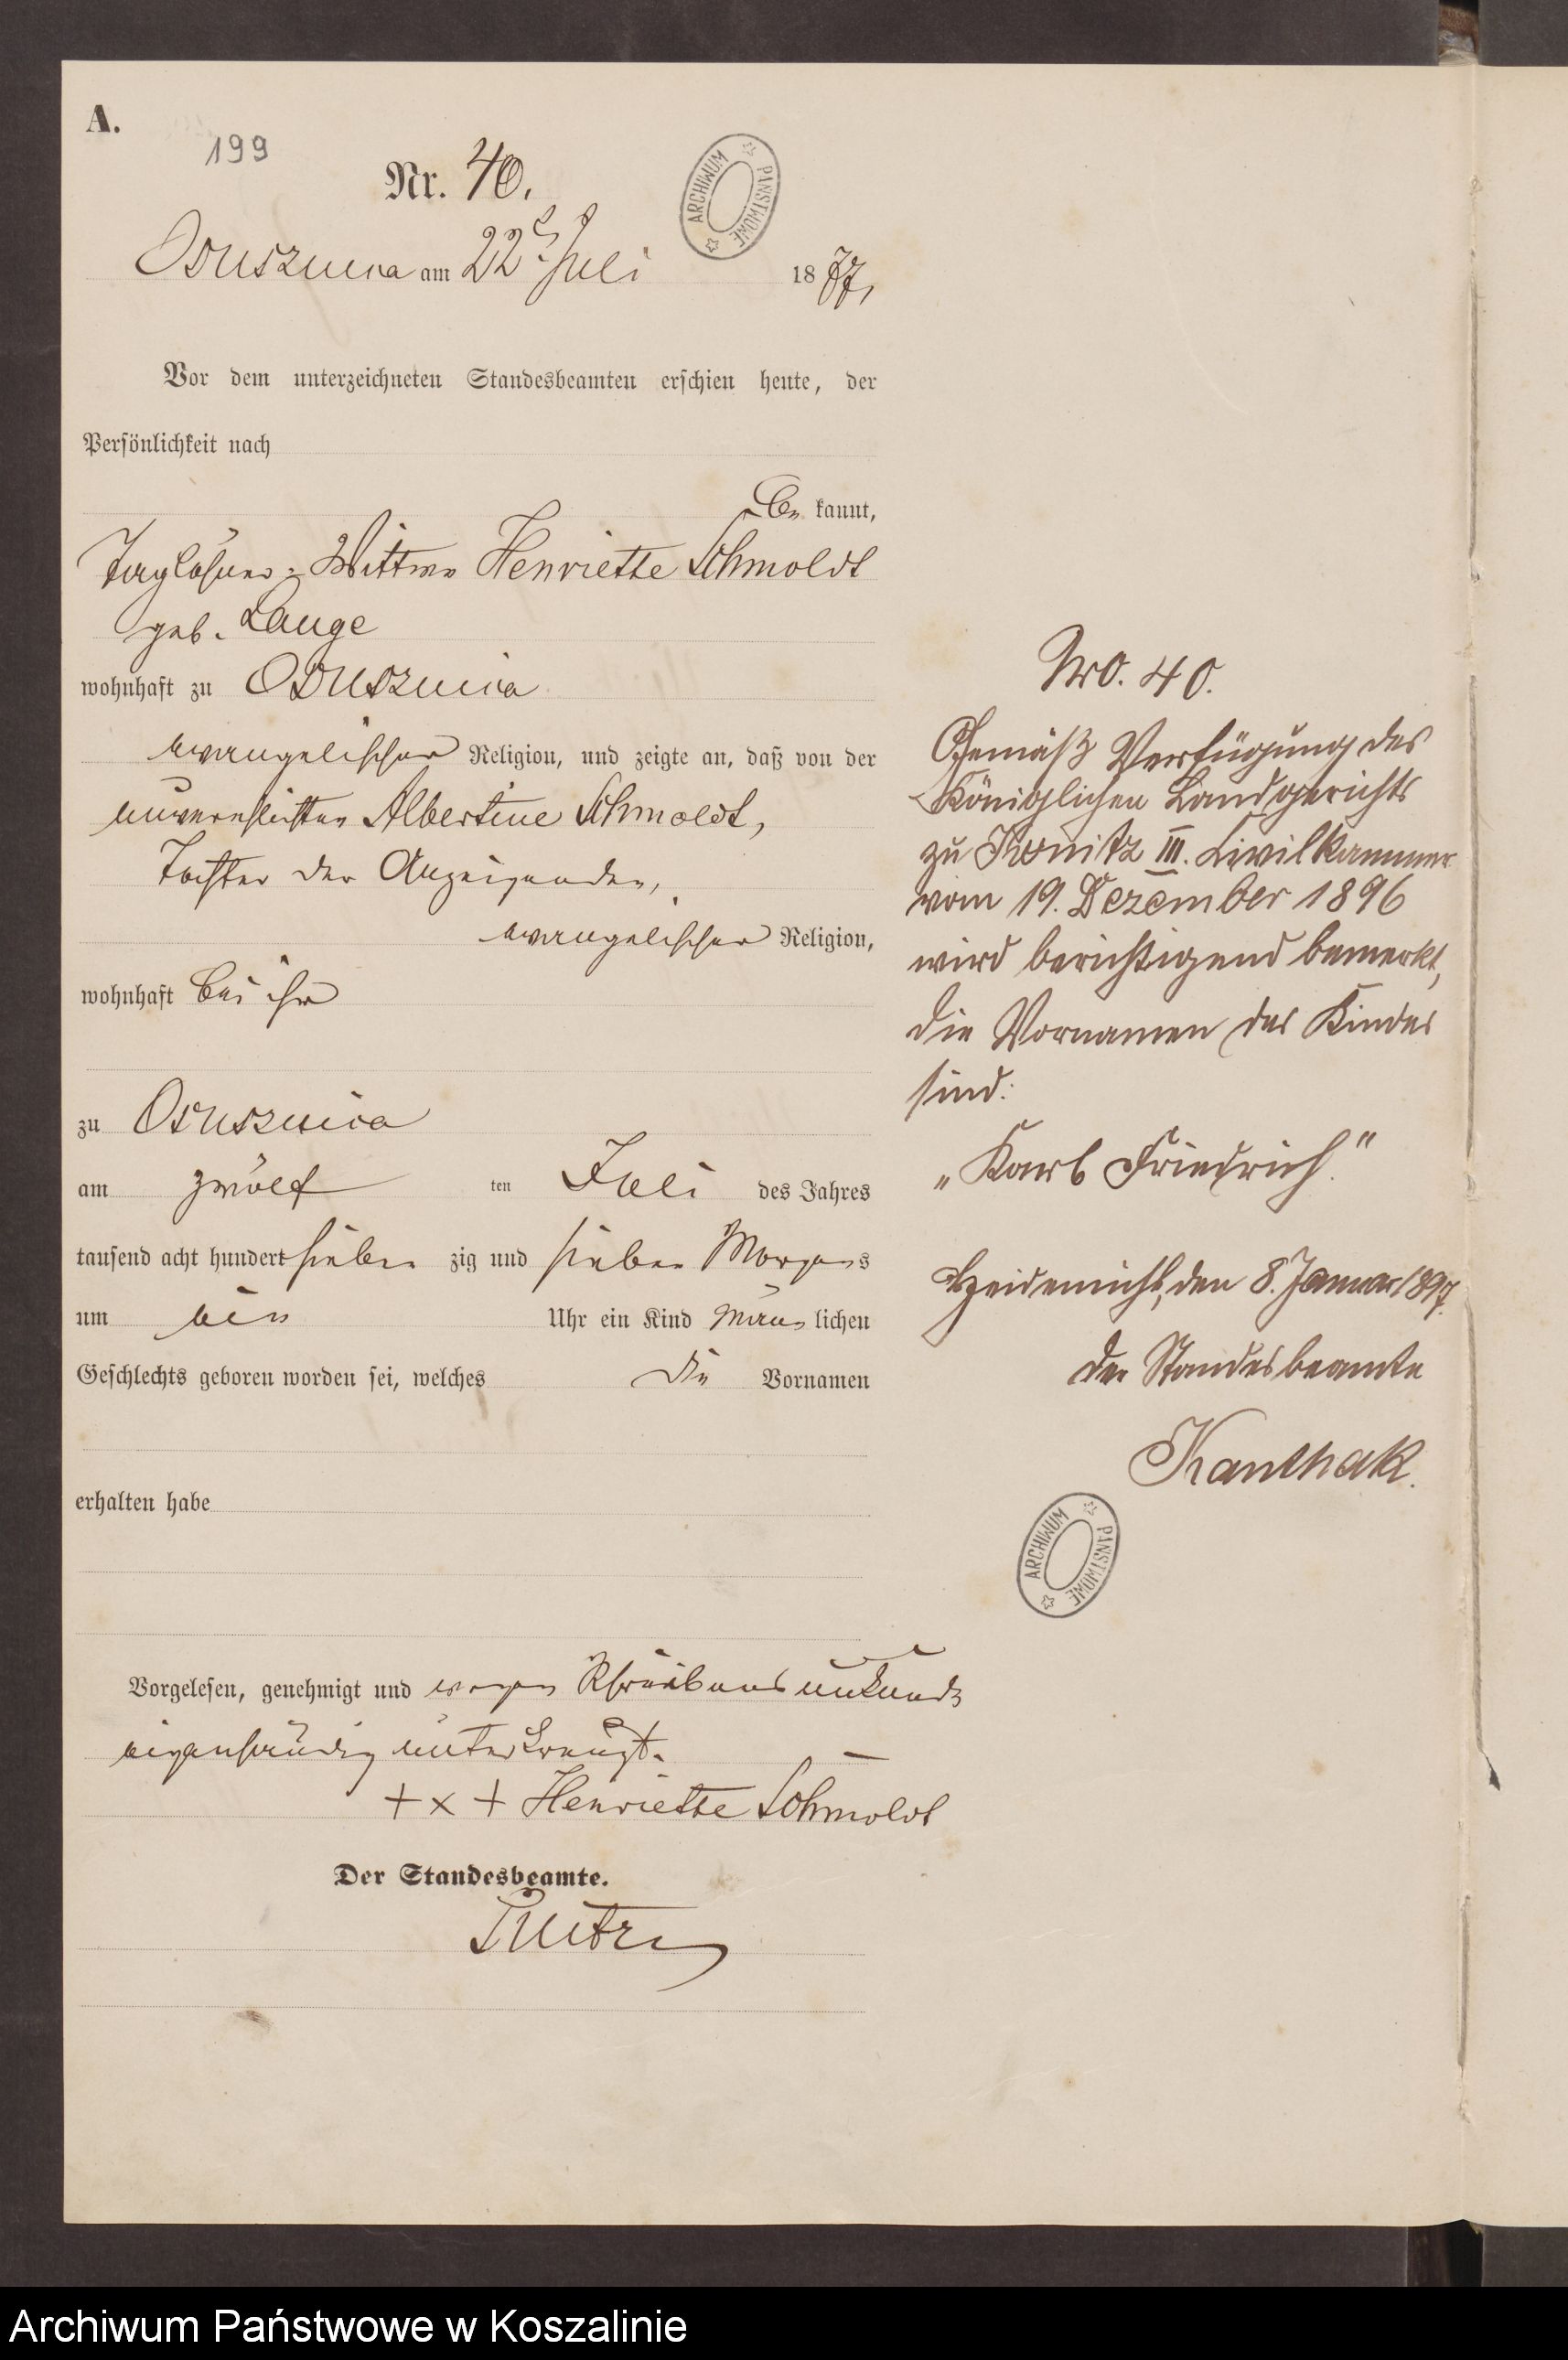 A.
199
Nr. 40.
ARCHIWUM PAŃSTWOWE
Ossusznica am 22t Juli 1877,
Vor dem unterzeichneten Standesbeamten erschien heute, der
Persönlichkeit nach
be kannt,
Taglöhner-Wittwe Henriette Schmoldt
geb. Lange
wohnhaft zu Ossusznica
evangelischer Religion, und zeigte an, daß von der
unverehlichten Albertine Schmoldt,
Tochter der Anzeigenden,
evangelischer Religion,
wohnhaft bei ihr
zu Ossusznica
am zwölf ten Juli des Jahres
tausend acht hundert sieben zig und sieben Morgens
um ein Uhr ein Kind männ lichen
Geschlechts geboren worden sei, welches die Vornamen
erhalten habe
Vorgelesen, genehmigt und wegen Schreibensunkunde
eigenhändig unterkreuzt.
+ x + Henriette Schmoldt
Der Standesbeamte.
No. 40.
Gemäß Verfügung des
Königlichen Landgerichts
zu Konitz III. Civilkammer
vom 19. Dezember 1896
wird berichtigend bemerkt,
die Vornamen des Kindes
sind:
„Karl Friedrich."
den 8. Januar 1897.
Der Standesbeamte
Kanthak.
ARCHIWUM PAŃSTWOWE
Archiwum Państwowe w Koszalinie